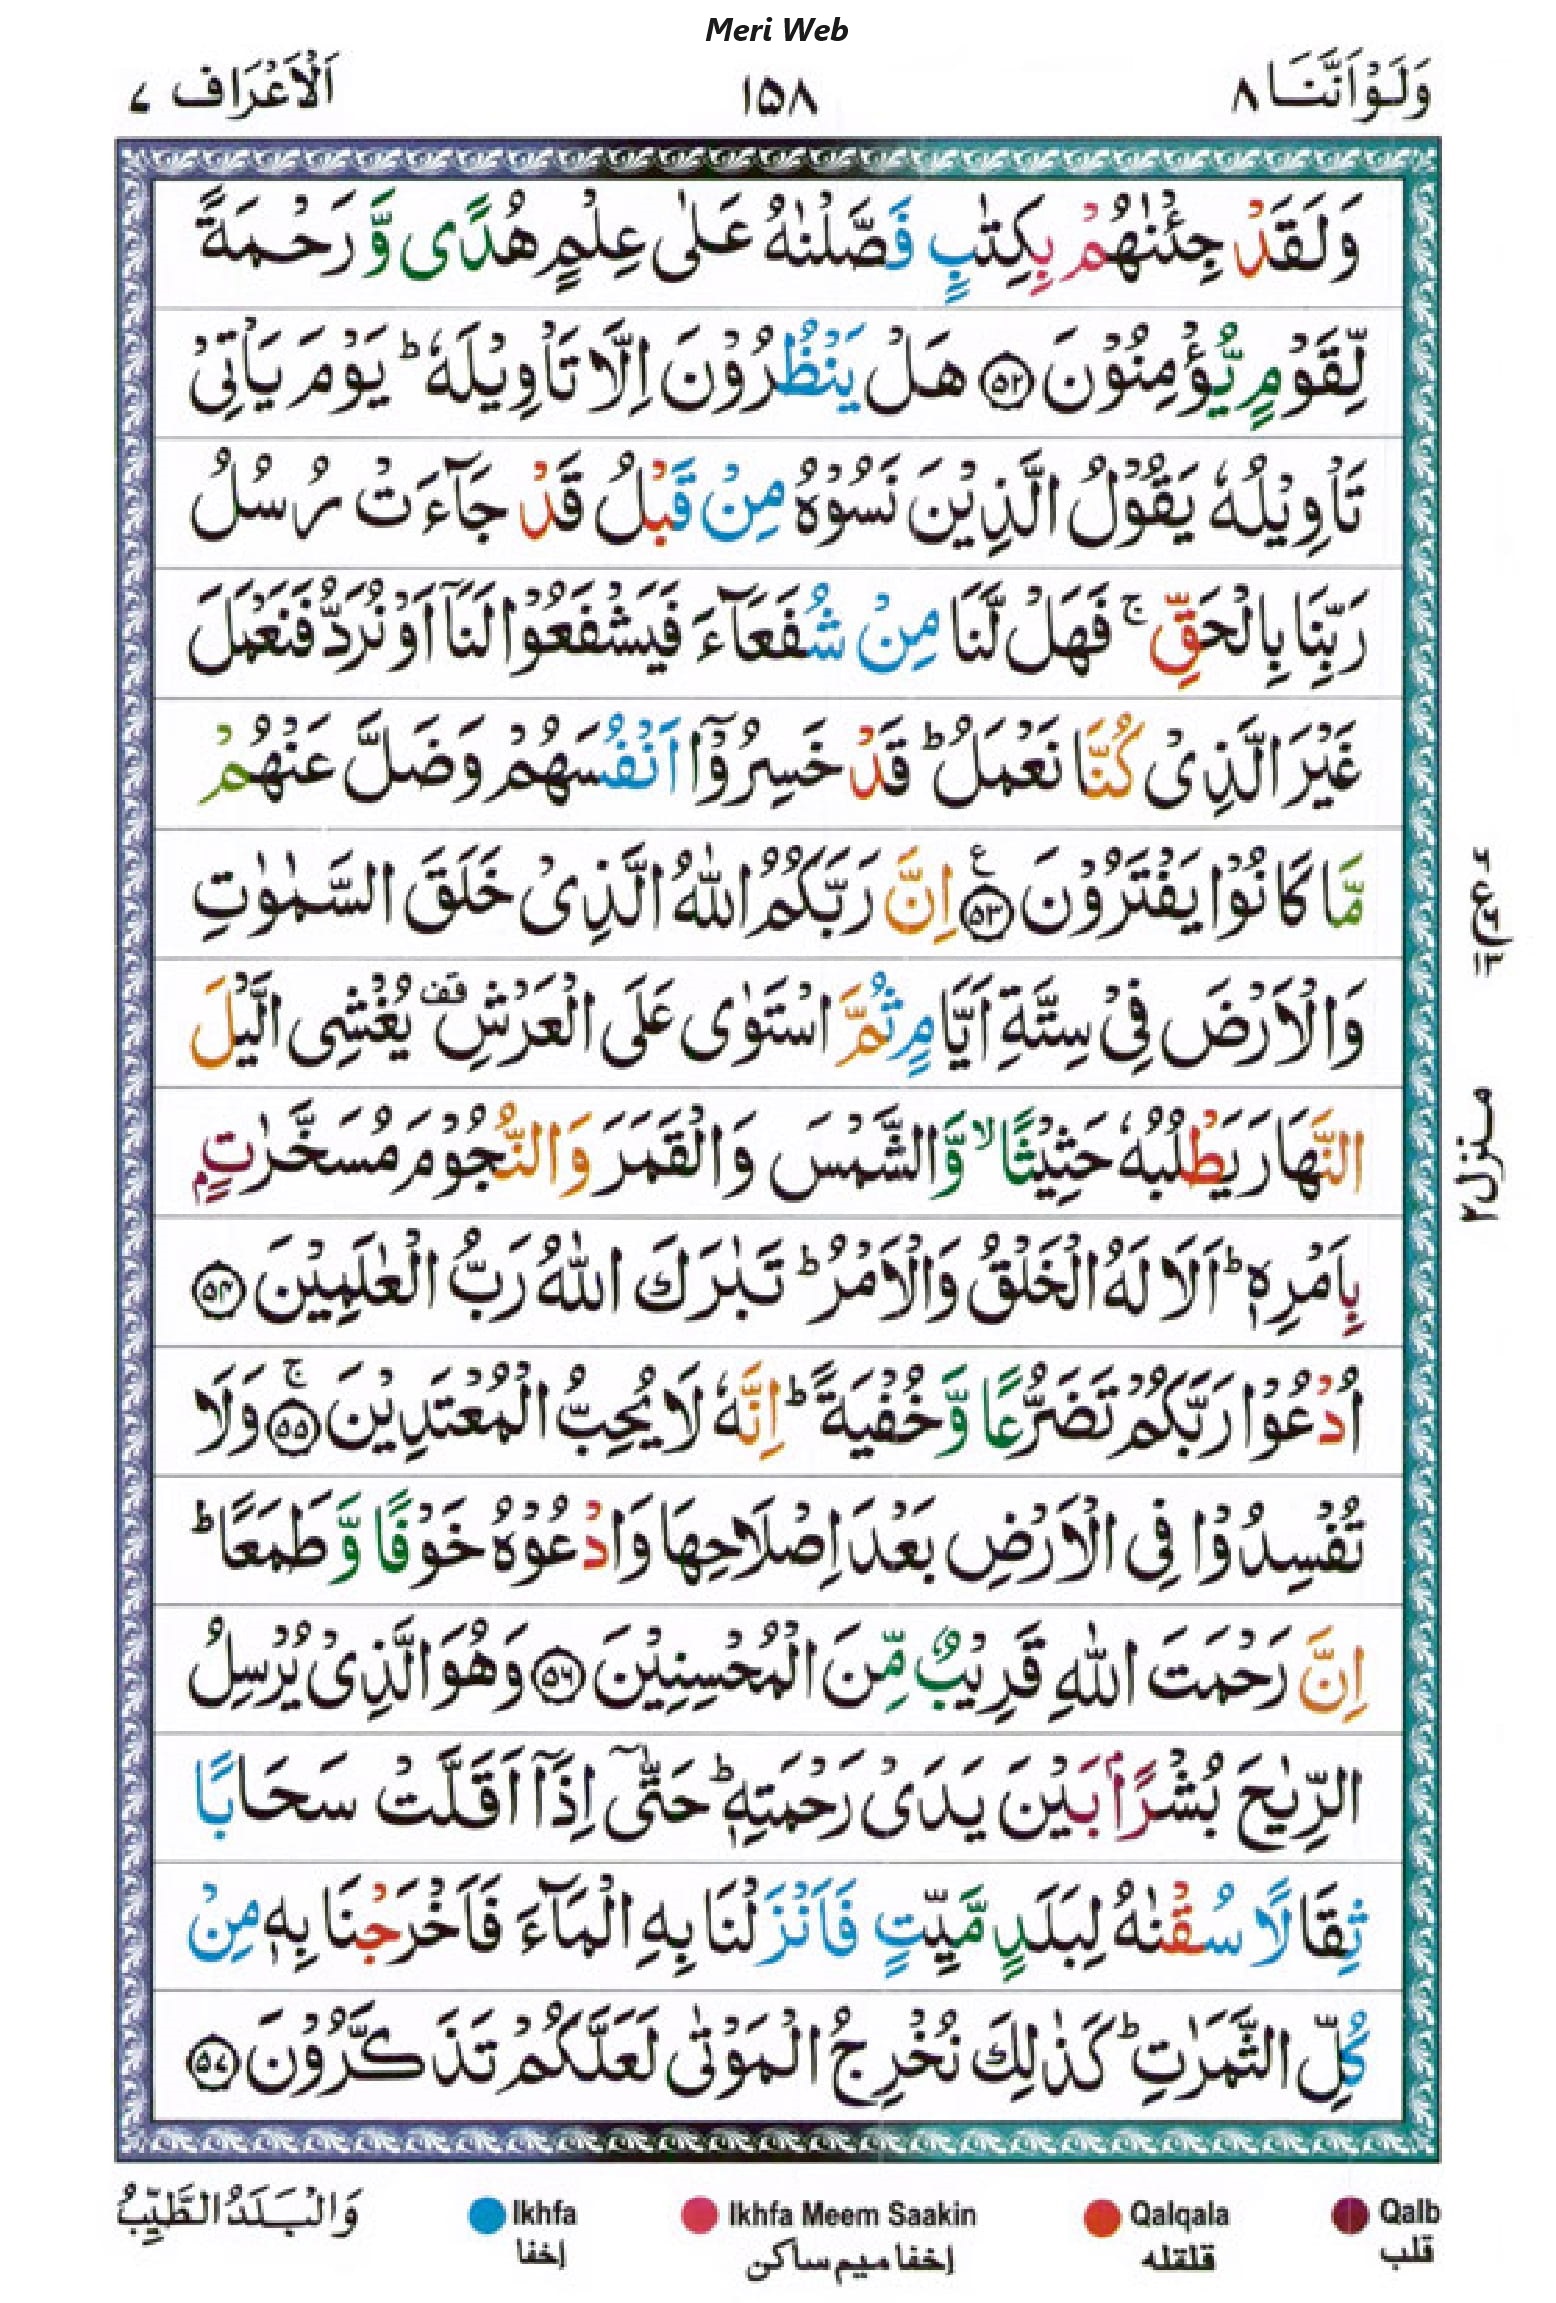 Meri Web
وَلَوْاَنَّنَا ٨
١٥٨
اَلْاَعْرَاف ٧
وَلَقَدْ جِئْنٰهُمْ بِكِتٰبٍ فَصَّلْنٰهُ عَلٰى عِلْمٍ هُدًى وَّ رَحْمَةً
لِّقَوْمٍ يُّؤْمِنُوْنَ ﴿٥٢﴾ هَلْ يَنْظُرُوْنَ اِلَّا تَاْوِيْلَهٗ ؕ يَوْمَ يَاْتِىْ
تَاْوِيْلُهٗ يَقُوْلُ الَّذِيْنَ نَسُوْهُ مِنْ قَبْلُ قَدْ جَآءَتْ رُسُلُ
رَبِّنَا بِالْحَقِّ ۚ فَهَلْ لَّنَا مِنْ شُفَعَآءَ فَيَشْفَعُوْا لَنَاۤ اَوْ نُرَدُّ فَنَعْمَلَ
غَيْرَ الَّذِىْ كُنَّا نَعْمَلُ ؕ قَدْ خَسِرُوْۤا اَنْفُسَهُمْ وَضَلَّ عَنْهُمْ
مَّا كَانُوْا يَفْتَرُوْنَ ﴿٥٣﴾ اِنَّ رَبَّكُمُ اللّٰهُ الَّذِىْ خَلَقَ السَّمٰوٰتِ
وَالْاَرْضَ فِىْ سِتَّةِ اَيَّامٍ ثُمَّ اسْتَوٰى عَلَى الْعَرْشِ قف يُغْشِى الَّيْلَ
النَّهَارَ يَطْلُبُهٗ حَثِيْثًا ۙ وَّالشَّمْسَ وَالْقَمَرَ وَالنُّجُوْمَ مُسَخَّرٰتٍۭ
بِاَمْرِهٖ ؕ اَلَا لَهُ الْخَلْقُ وَالْاَمْرُ ؕ تَبٰرَكَ اللّٰهُ رَبُّ الْعٰلَمِيْنَ ﴿٥٤﴾
اُدْعُوْا رَبَّكُمْ تَضَرُّعًا وَّخُفْيَةً ؕ اِنَّهٗ لَا يُحِبُّ الْمُعْتَدِيْنَ ﴿٥٥﴾ ۚ وَلَا
تُفْسِدُوْا فِى الْاَرْضِ بَعْدَ اِصْلَاحِهَا وَادْعُوْهُ خَوْفًا وَّطَمَعًا ؕ
اِنَّ رَحْمَتَ اللّٰهِ قَرِيْبٌ مِّنَ الْمُحْسِنِيْنَ ﴿٥٦﴾ وَهُوَ الَّذِىْ يُرْسِلُ
الرِّيٰحَ بُشْرًۢا بَيْنَ يَدَىْ رَحْمَتِهٖ ؕ حَتّٰۤى اِذَاۤ اَقَلَّتْ سَحَابًا
ثِقَالًا سُقْنٰهُ لِبَلَدٍ مَّيِّتٍ فَاَنْزَلْنَا بِهِ الْمَآءَ فَاَخْرَجْنَا بِهٖ مِنْ
كُلِّ الثَّمَرٰتِ ؕ كَذٰلِكَ نُخْرِجُ الْمَوْتٰى لَعَلَّكُمْ تَذَكَّرُوْنَ ﴿٥٧﴾
منزل ٢
وَالْبَلَدُ الطَّيِّبُ
Ikhfa
إخفا
Ikhfa Meem Saakin
إخفا ميم ساكن
Qalqala
قلقله
Qalb
قلب